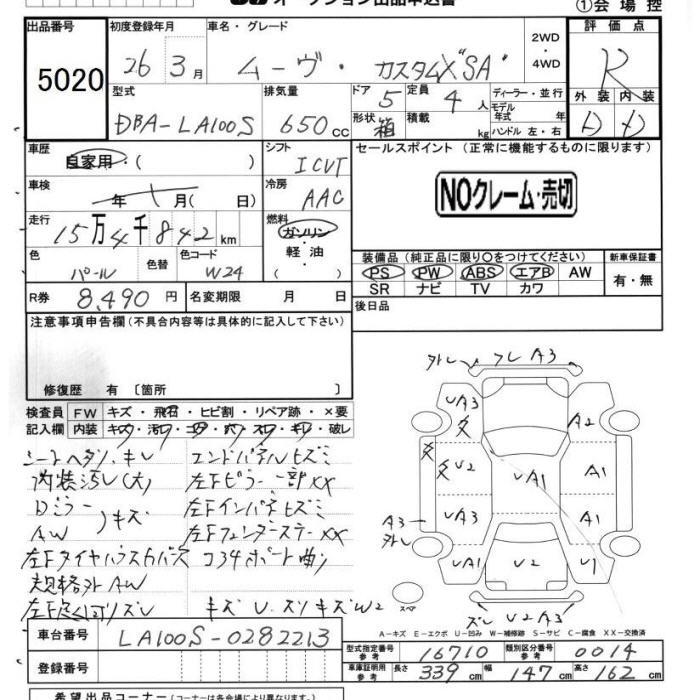 オークション出品申込書
①会場控
出品番号 5020
初度登録年月 26年 3月
車名・グレード ムーヴ・カスタムX"SA"
2WD
・
4WD
評価点 R
外装 D 内装 D
型式 DBA-LA100S
排気量 650 cc
ドア 5
定員 4 人
形状 箱
積載 kg
ディーラー・並行
モデル年式 年
ハンドル 左・右
車歴 自家用・( )
シフト ICVT
セールスポイント (正常に機能するものに限ります)
NOクレーム・売切
車検 年 月( 日)
冷房 AAC
走行 15万4千842 km
燃料 ガソリン・軽油
( )
色 パール
色替
色コード W24
装備品 (純正品に限り○をつけてください)
PS PW ABS エアB AW
SR ナビ TV カワ
新車保証書 有・無
R券 8,490 円
名変期限 月 日
後日品
注意事項申告欄 (不具合内容等は具体的に記入して下さい)
修復歴 有 〔箇所 〕
検査員記入欄
FW キズ・飛石・ヒビ割・リペア跡・×要
内装 キズ・汚レ・コゲ・穴・スレ・キレ・破レ
シートヘタリ、キレ エンドパネルヒズミ
内装汚レ(大) 左Fピラー一部XX
Dミラー
AW )キズ
左Fインパネヒズミ
左Fフェンダーステ-XX
左Fタイヤハウスカバーズレ コーナーポート曲リ
規格外AW
キズ U・スリキズW2
外レ フレ A3
UA3
A2
U2
UA1
A1
UA3
A1
A3
外レ
UA1
U2
U1
スペア
ズレ U2 A3
A-キズ E-エクボ U-凹み W-補修跡 S-サビ C-腐食 XX-交換済
車台番号 LA100S-0282213
登録番号
型式指定番号 参考 16710
類別区分番号 参考 0014
車庫証明用 参考 長さ 339 cm 幅 147 cm 高さ 162 cm
希望出品コーナー (コーナーは各会場により異なります)